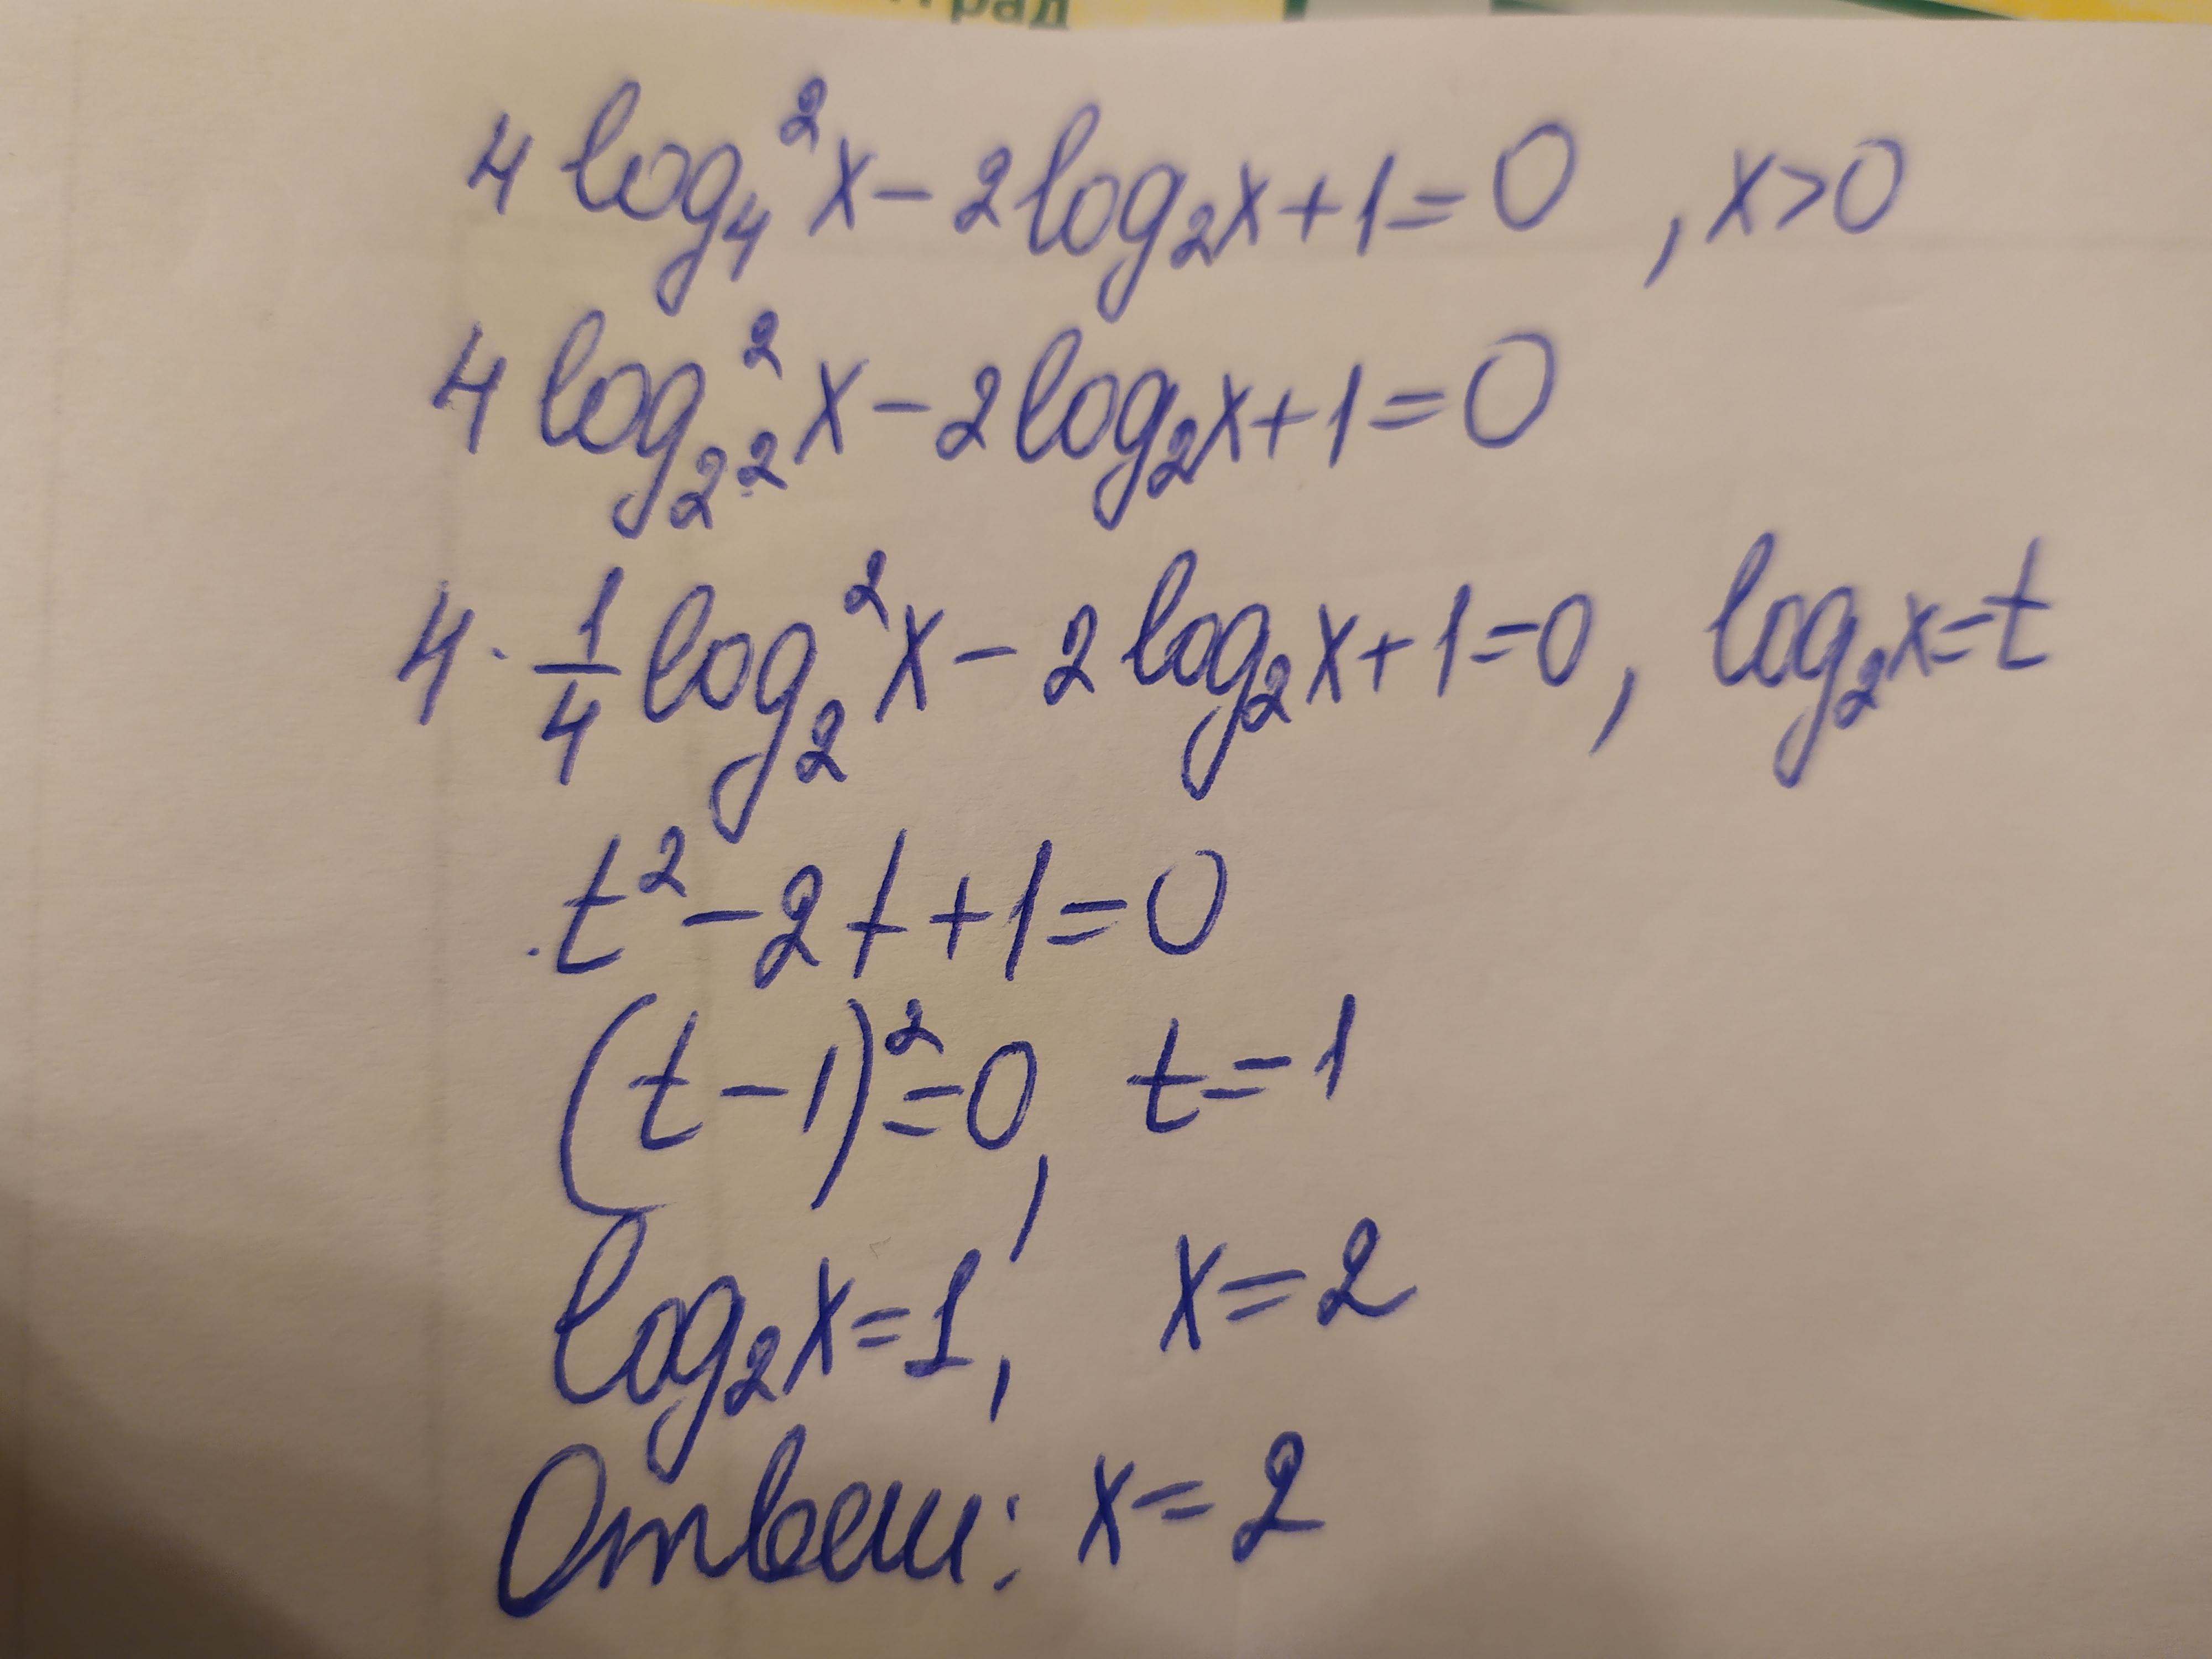 4 log₄² x − 2 log₂ x + 1 = 0 , x > 0
4 log_{2²}² x − 2 log₂ x + 1 = 0
4 · 1/4 log₂² x − 2 log₂ x + 1 = 0 , log₂ x = t
t² − 2t + 1 = 0
(t − 1)² = 0, t = 1
log₂ x = 1, x = 2
Ответ: x = 2